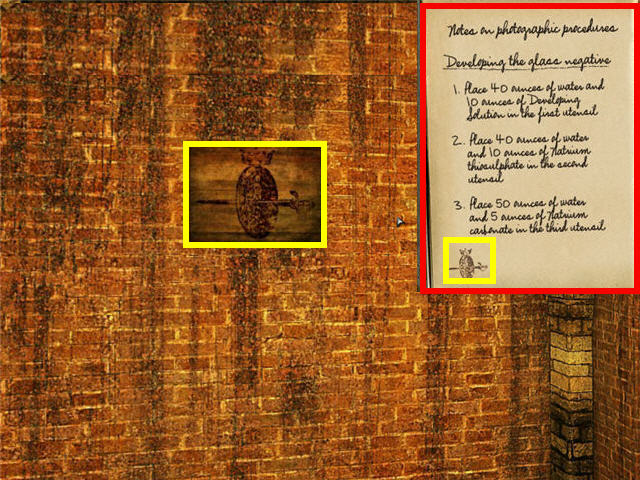 Notes on photographic procedures
Developing the glass negative
1. Place 40 ounces of water and
10 ounces of Developing
Solution in the first utensil
2. Place 40 ounces of water
and 10 ounces of Natrium
thiosulphate in the second
utensil
3. Place 50 ounces of water
and 5 ounces of Natrium
carbonate in the third utensil